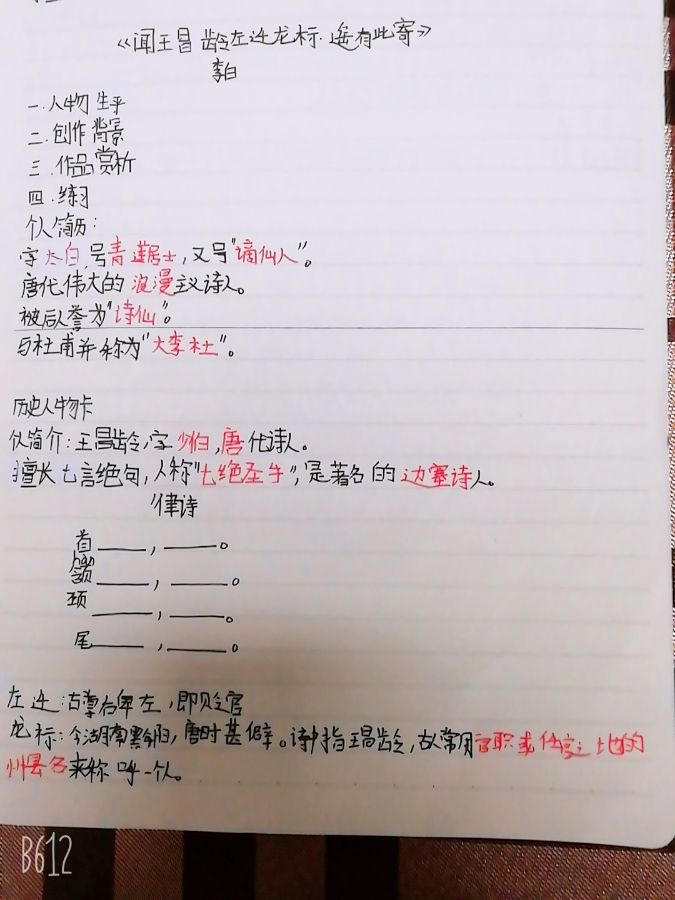 《闻王昌龄左迁龙标遥有此寄》
李白
一.人物生平
二.创作背景
三.作品赏析
四.练习
个人简历:
字太白,号青莲居士,又号“谪仙人”。
唐代伟大的浪漫主义诗人。
被后人誉为“诗仙”。
与杜甫并称为“大李杜”。
历史人物卡
个人简介:王昌龄,字少伯,唐代诗人。
擅长七言绝句,人称“七绝圣手”,是著名的边塞诗人。
律诗
首——,——。
颔——,——。
颈——,——。
尾——,——。
左迁:古尊右卑左,即贬官
龙标:今湖南黔阳,唐时甚僻。诗中指王昌龄,古人常用官职或任官之地的
州县名来称呼一个人。
B612